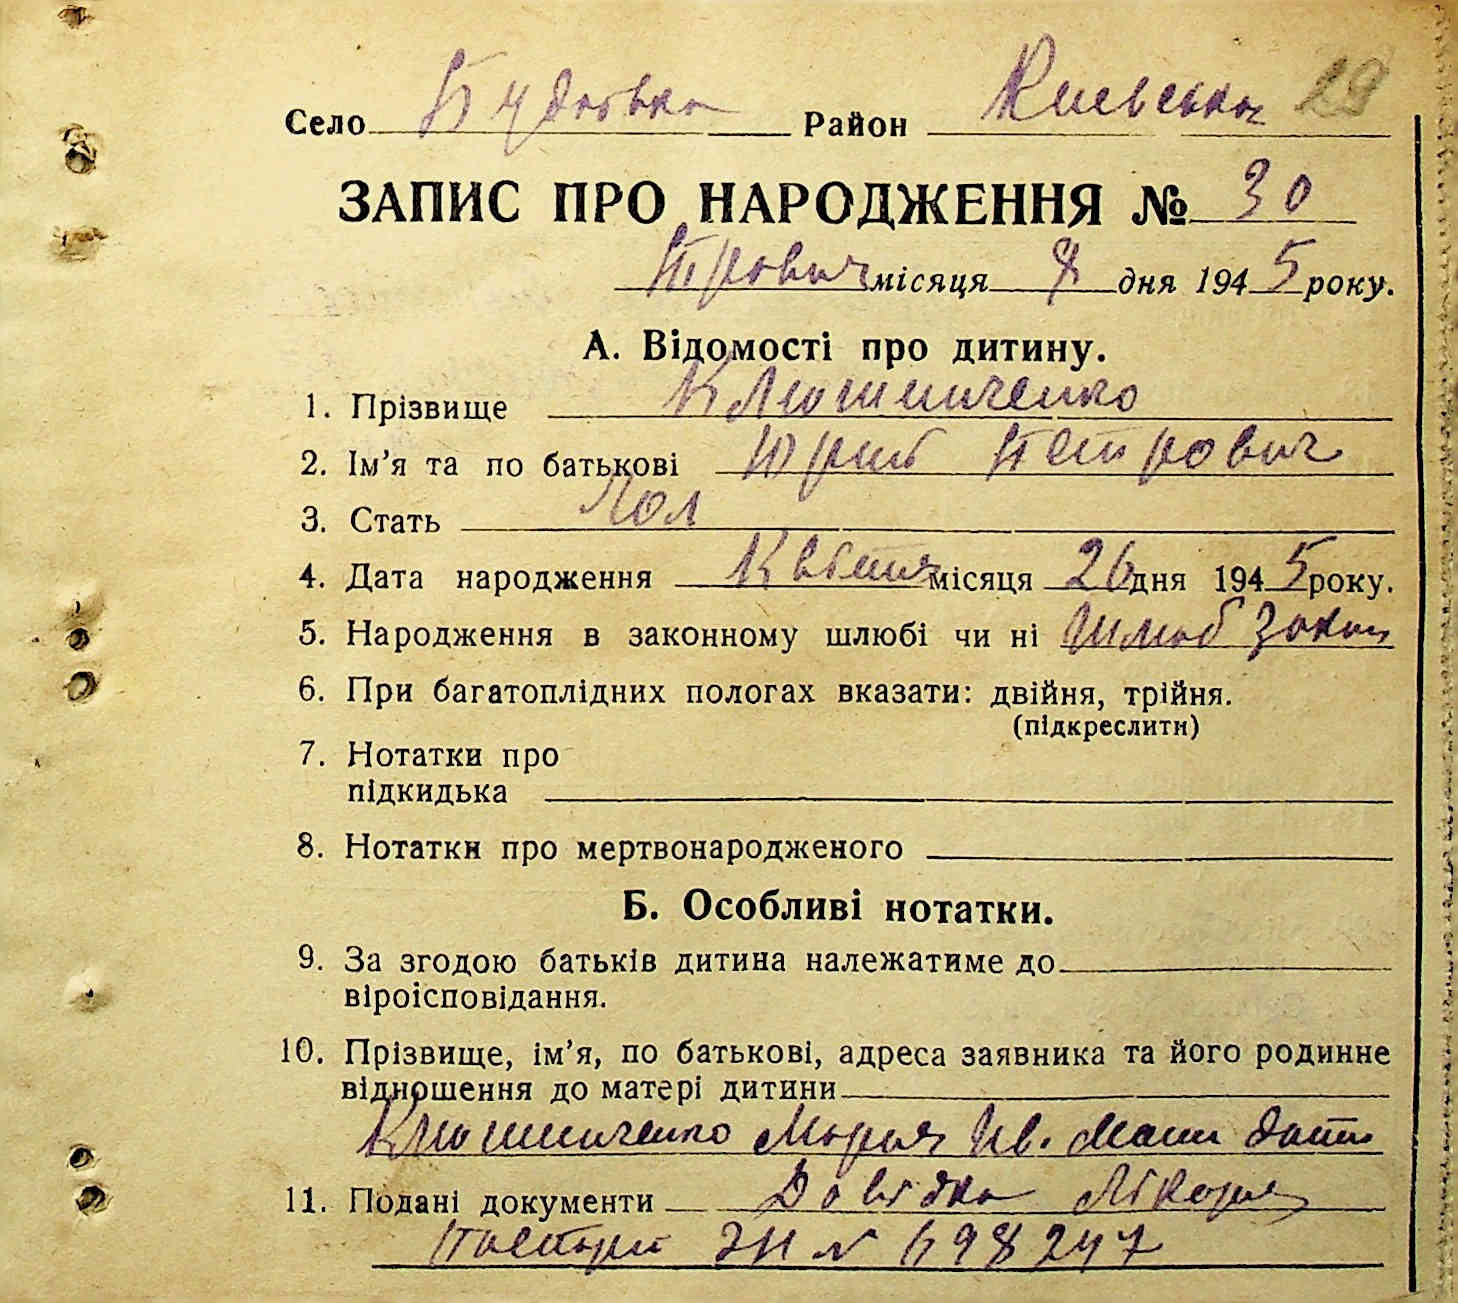 Село Будаївка Район Киевська 29
ЗАПИС ПРО НАРОДЖЕННЯ № 30
місяця 8 дня 1945 року.
А. Відомості про дитину.
1. Прізвище Клюшниченко
2. Ім’я та по батькові Юрий Петрович
3. Стать Пол
4. Дата народження Квітня місяця 26 дня 1945 року.
5. Народження в законному шлюбі чи ні Шлюб закон
6. При багатоплідних пологах вказати: двійня, трійня.
(підкреслити)
7. Нотатки про
підкидька
8. Нотатки про мертвонародженого
Б. Особливі нотатки.
9. За згодою батьків дитина належатиме до
віроісповідання.
10. Прізвище, ім’я, по батькові, адреса заявника та його родинне
відношення до матері дитини
Клюшниченко Мария Ів. Мати дити
11. Подані документи Довідка Лікаря
Паспорт ЗН № 698247